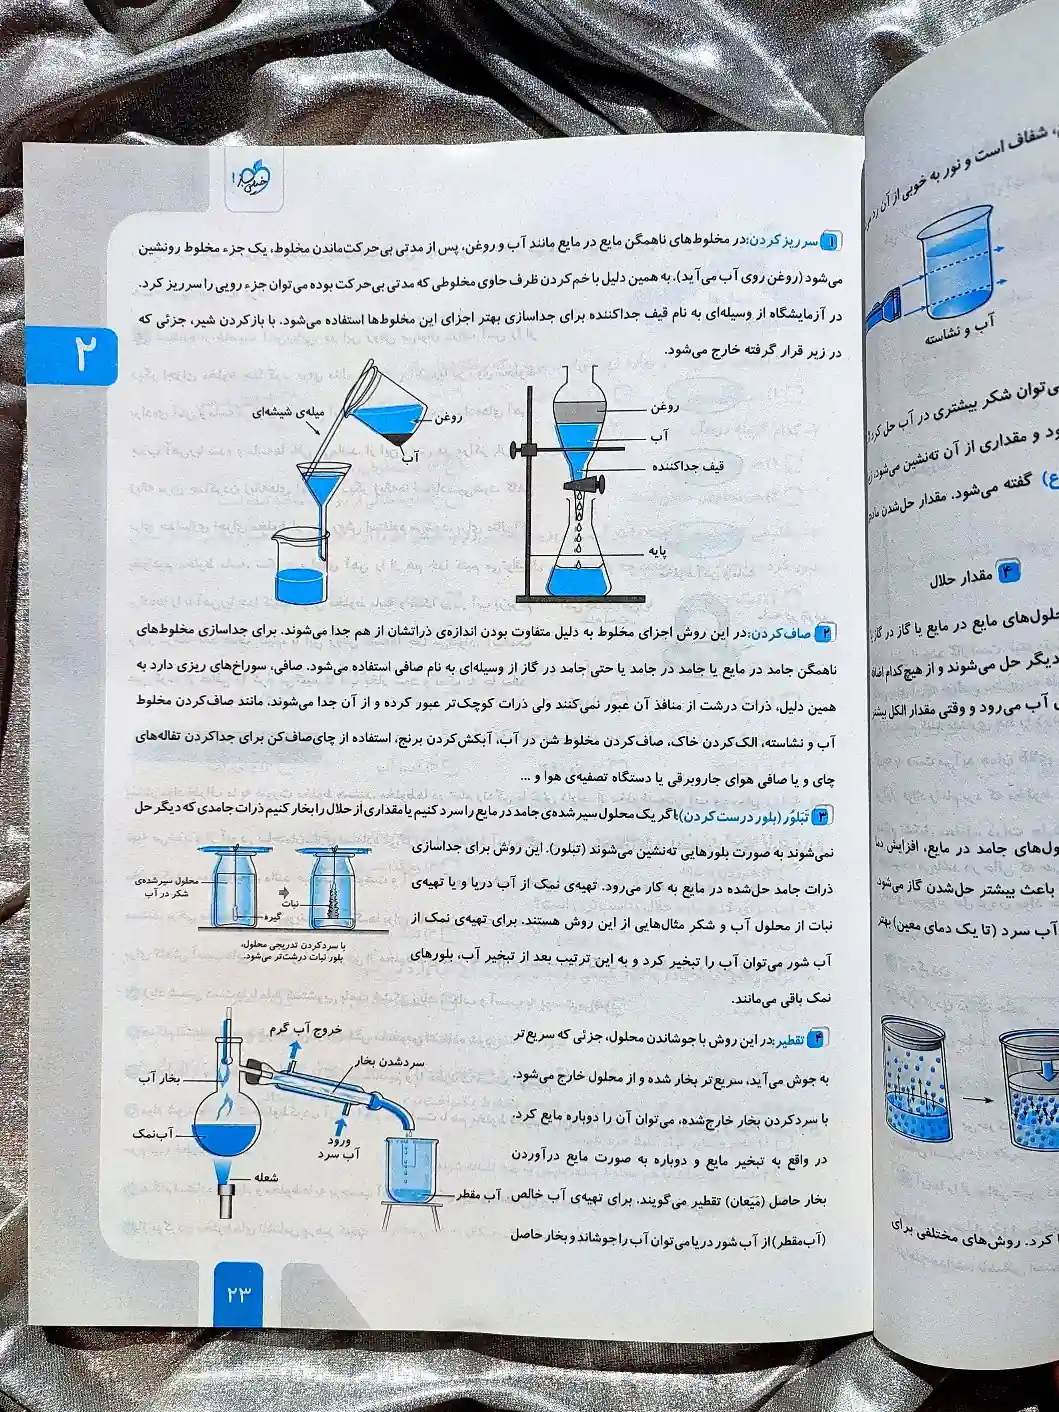 خیلی سبز
۱ سرریز کردن: در مخلوط‌های ناهمگن مایع در مایع مانند آب و روغن، پس از مدتی بی‌حرکت‌ماندن مخلوط، یک جزء مخلوط رونشین
می‌شود (روغن روی آب می‌آید). به همین دلیل با خم‌کردن ظرف حاوی مخلوطی که مدتی بی‌حرکت بوده می‌توان جزء رویی را سرریز کرد.
در آزمایشگاه از وسیله‌ای به نام قیف جداکننده برای جداسازی بهتر اجزای این مخلوط‌ها استفاده می‌شود. با بازکردن شیر، جزئی که
در زیر قرار گرفته خارج می‌شود.
۲
میله‌ی شیشه‌ای
روغن
آب
روغن
آب
قیف جداکننده
پایه
۲ صاف‌کردن: در این روش اجزای مخلوط به دلیل متفاوت بودن اندازه‌ی ذراتشان از هم جدا می‌شوند. برای جداسازی مخلوط‌های
ناهمگن جامد در مایع یا جامد در جامد یا حتی جامد در گاز از وسیله‌ای به نام صافی استفاده می‌شود. صافی، سوراخ‌های ریزی دارد به
همین دلیل، ذرات درشت از منافذ آن عبور نمی‌کنند ولی ذرات کوچک‌تر عبور کرده و از آن جدا می‌شوند. مانند صاف‌کردن مخلوط
آب و نشاسته، الک‌کردن خاک، صاف‌کردن مخلوط شن در آب، آبکش‌کردن برنج، استفاده از چای‌صاف‌کن برای جداکردن تفاله‌های
چای و یا صافی هوای جاروبرقی یا دستگاه تصفیه‌ی هوا و ...
۳ تَبَلوُر (بلور درست کردن): اگر یک محلول سیرشده‌ی جامد در مایع را سرد کنیم یا مقداری از حلال را بخار کنیم ذرات جامدی که دیگر حل
نمی‌شوند به صورت بلورهایی ته‌نشین می‌شوند (تبلور). این روش برای جداسازی
ذرات جامد حل‌شده در مایع به کار می‌رود. تهیه‌ی نمک از آب دریا و یا تهیه‌ی
نبات از محلول آب و شکر مثال‌هایی از این روش هستند. برای تهیه‌ی نمک از
آب شور می‌توان آب را تبخیر کرد و به این ترتیب بعد از تبخیر آب، بلورهای
نمک باقی می‌مانند.
محلول سیرشده‌ی
شکر در آب
نبات
گیره
با سردکردن تدریجی محلول،
بلور نبات درشت‌تر می‌شود.
۴ تقطیر: در این روش با جوشاندن محلول، جزئی که سریع‌تر
به جوش می‌آید، سریع‌تر بخار شده و از محلول خارج می‌شود.
با سردکردن بخار خارج‌شده، می‌توان آن را دوباره مایع کرد.
در واقع به تبخیر مایع و دوباره به صورت مایع درآوردن
بخار حاصل (مَیَعان) تقطیر می‌گویند. برای تهیه‌ی آب خالص
(آب‌مقطر) از آب شور دریا می‌توان آب را جوشاند و بخار حاصل
خروج آب گرم
سردشدن بخار
بخار آب
آب‌نمک
ورود
آب سرد
شعله
آب مقطر
۲۳
شفاف است و نور به خوبی از آن رد
آب و نشاسته
می‌توان شکر بیشتری در آب حل کرد
ود و مقداری از آن ته‌نشین می‌شود
گفته می‌شود. مقدار حل‌شدن
۴ مقدار حلال
حلول‌های مایع در مایع یا گاز در گاز
دیگر حل می‌شوند و از هیچ‌کدام
آب می‌رود و وقتی مقدار الکل بیشتر
ول‌های جامد در مایع، افزایش دما
باعث بیشتر حل‌شدن گاز می‌شود
آب سرد (تا یک دمای معین) بهتر
کرد. روش‌های مختلفی برای